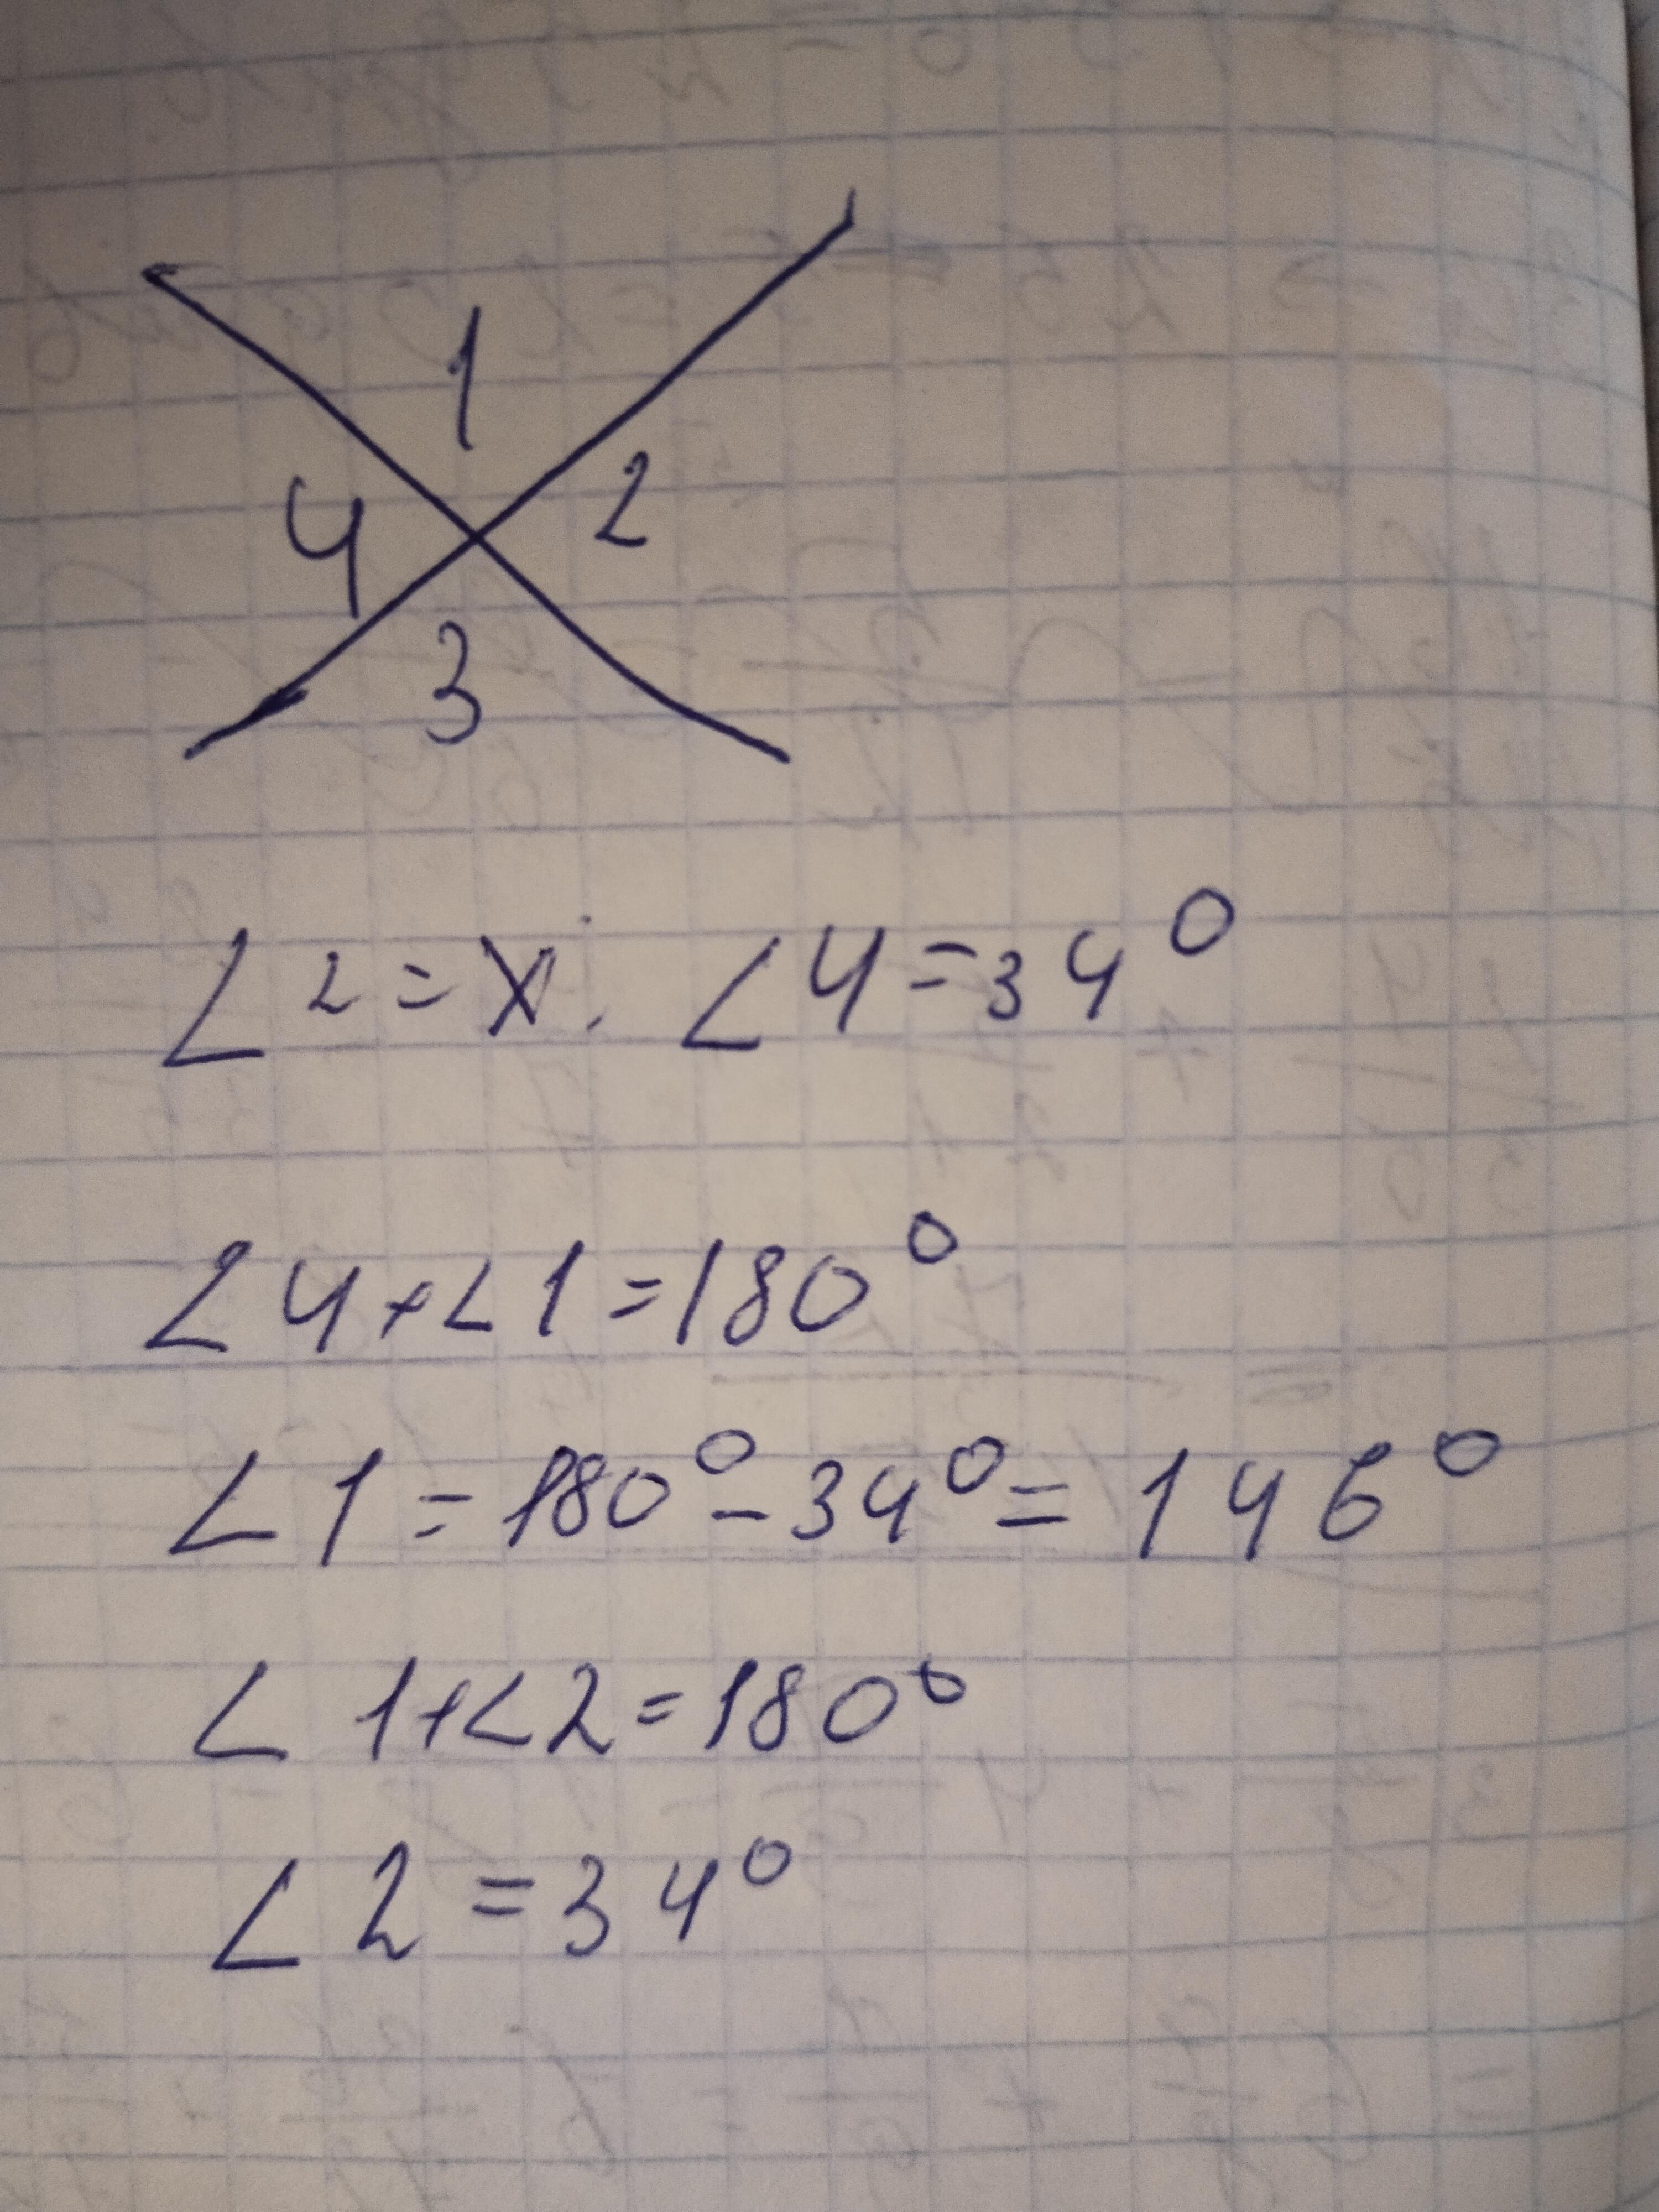 1
4 2
3
∠2=X. ∠4=34°
∠4+∠1=180°
∠1=180°-34°=146°
∠1+∠2=180°
∠2=34°